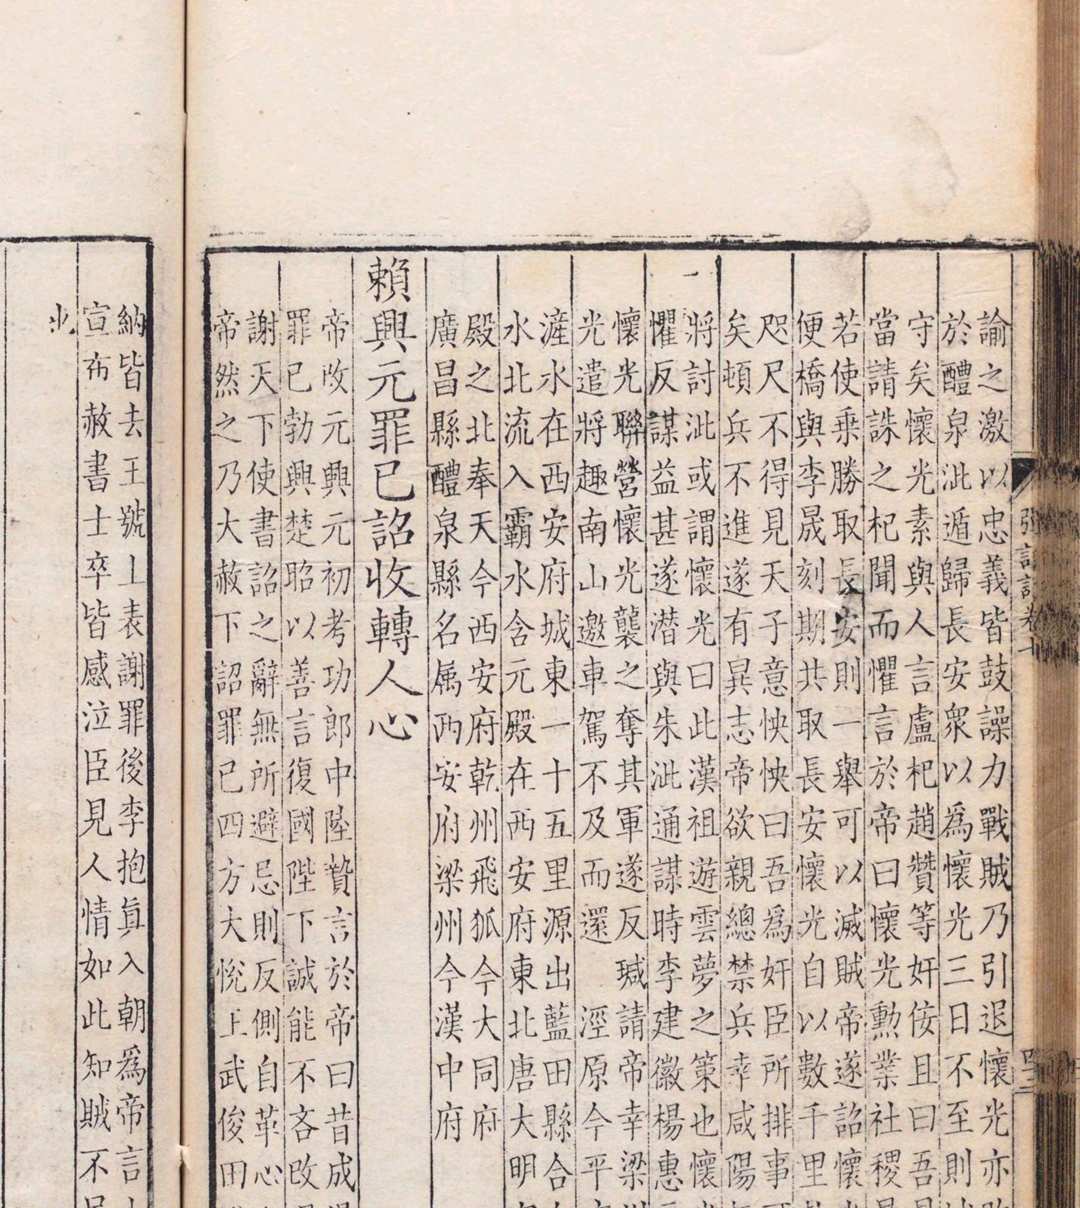 諭之激以忠義皆鼓譟力戰賊乃引退懷光亦
於醴泉泚遁歸長安衆以為懷光三日不至則
守矣懷光素與人言盧杞趙贊等奸佞且曰吾
當請誅之杞聞而懼言於帝曰懷光勳業社稷
若使乘勝取長安則一舉可以滅賊帝遂詔懷
便橋與李晟刻期共取長安懷光自以數千里
咫尺不得見天子意怏怏曰吾為奸臣所排事
矣頓兵不進遂有異志帝欲親總禁兵幸咸陽
將討泚或謂懷光曰此漢祖遊雲夢之策也懷
懼反謀益甚遂潜與朱泚通謀時李建徽楊惠
懷光聯營懷光襲之奪其軍遂反瑊請帝幸梁
光遣將趣南山邀車駕不及而還 涇原今平
滻水在西安府城東一十五里源出藍田縣合
水北流入霸水含元殿在西安府東北唐大明
殿之北奉天今西安府乾州飛狐今大同府
廣昌縣醴泉縣名属西安府梁州今漢中府
賴興元罪已詔收轉人心
帝改元興元初考功郎中陸贄言於帝曰昔成
罪已勃興楚昭以善言復國陛下誠能不吝改
謝天下使書詔之辭無所避忌則反側自革心
帝然之乃大赦下詔罪已四方大悅王武俊田
張說評卷七
四三
納皆去王號上表謝罪後李抱真入朝為帝言
宣布赦書士卒皆感泣臣見人情如此知賊不